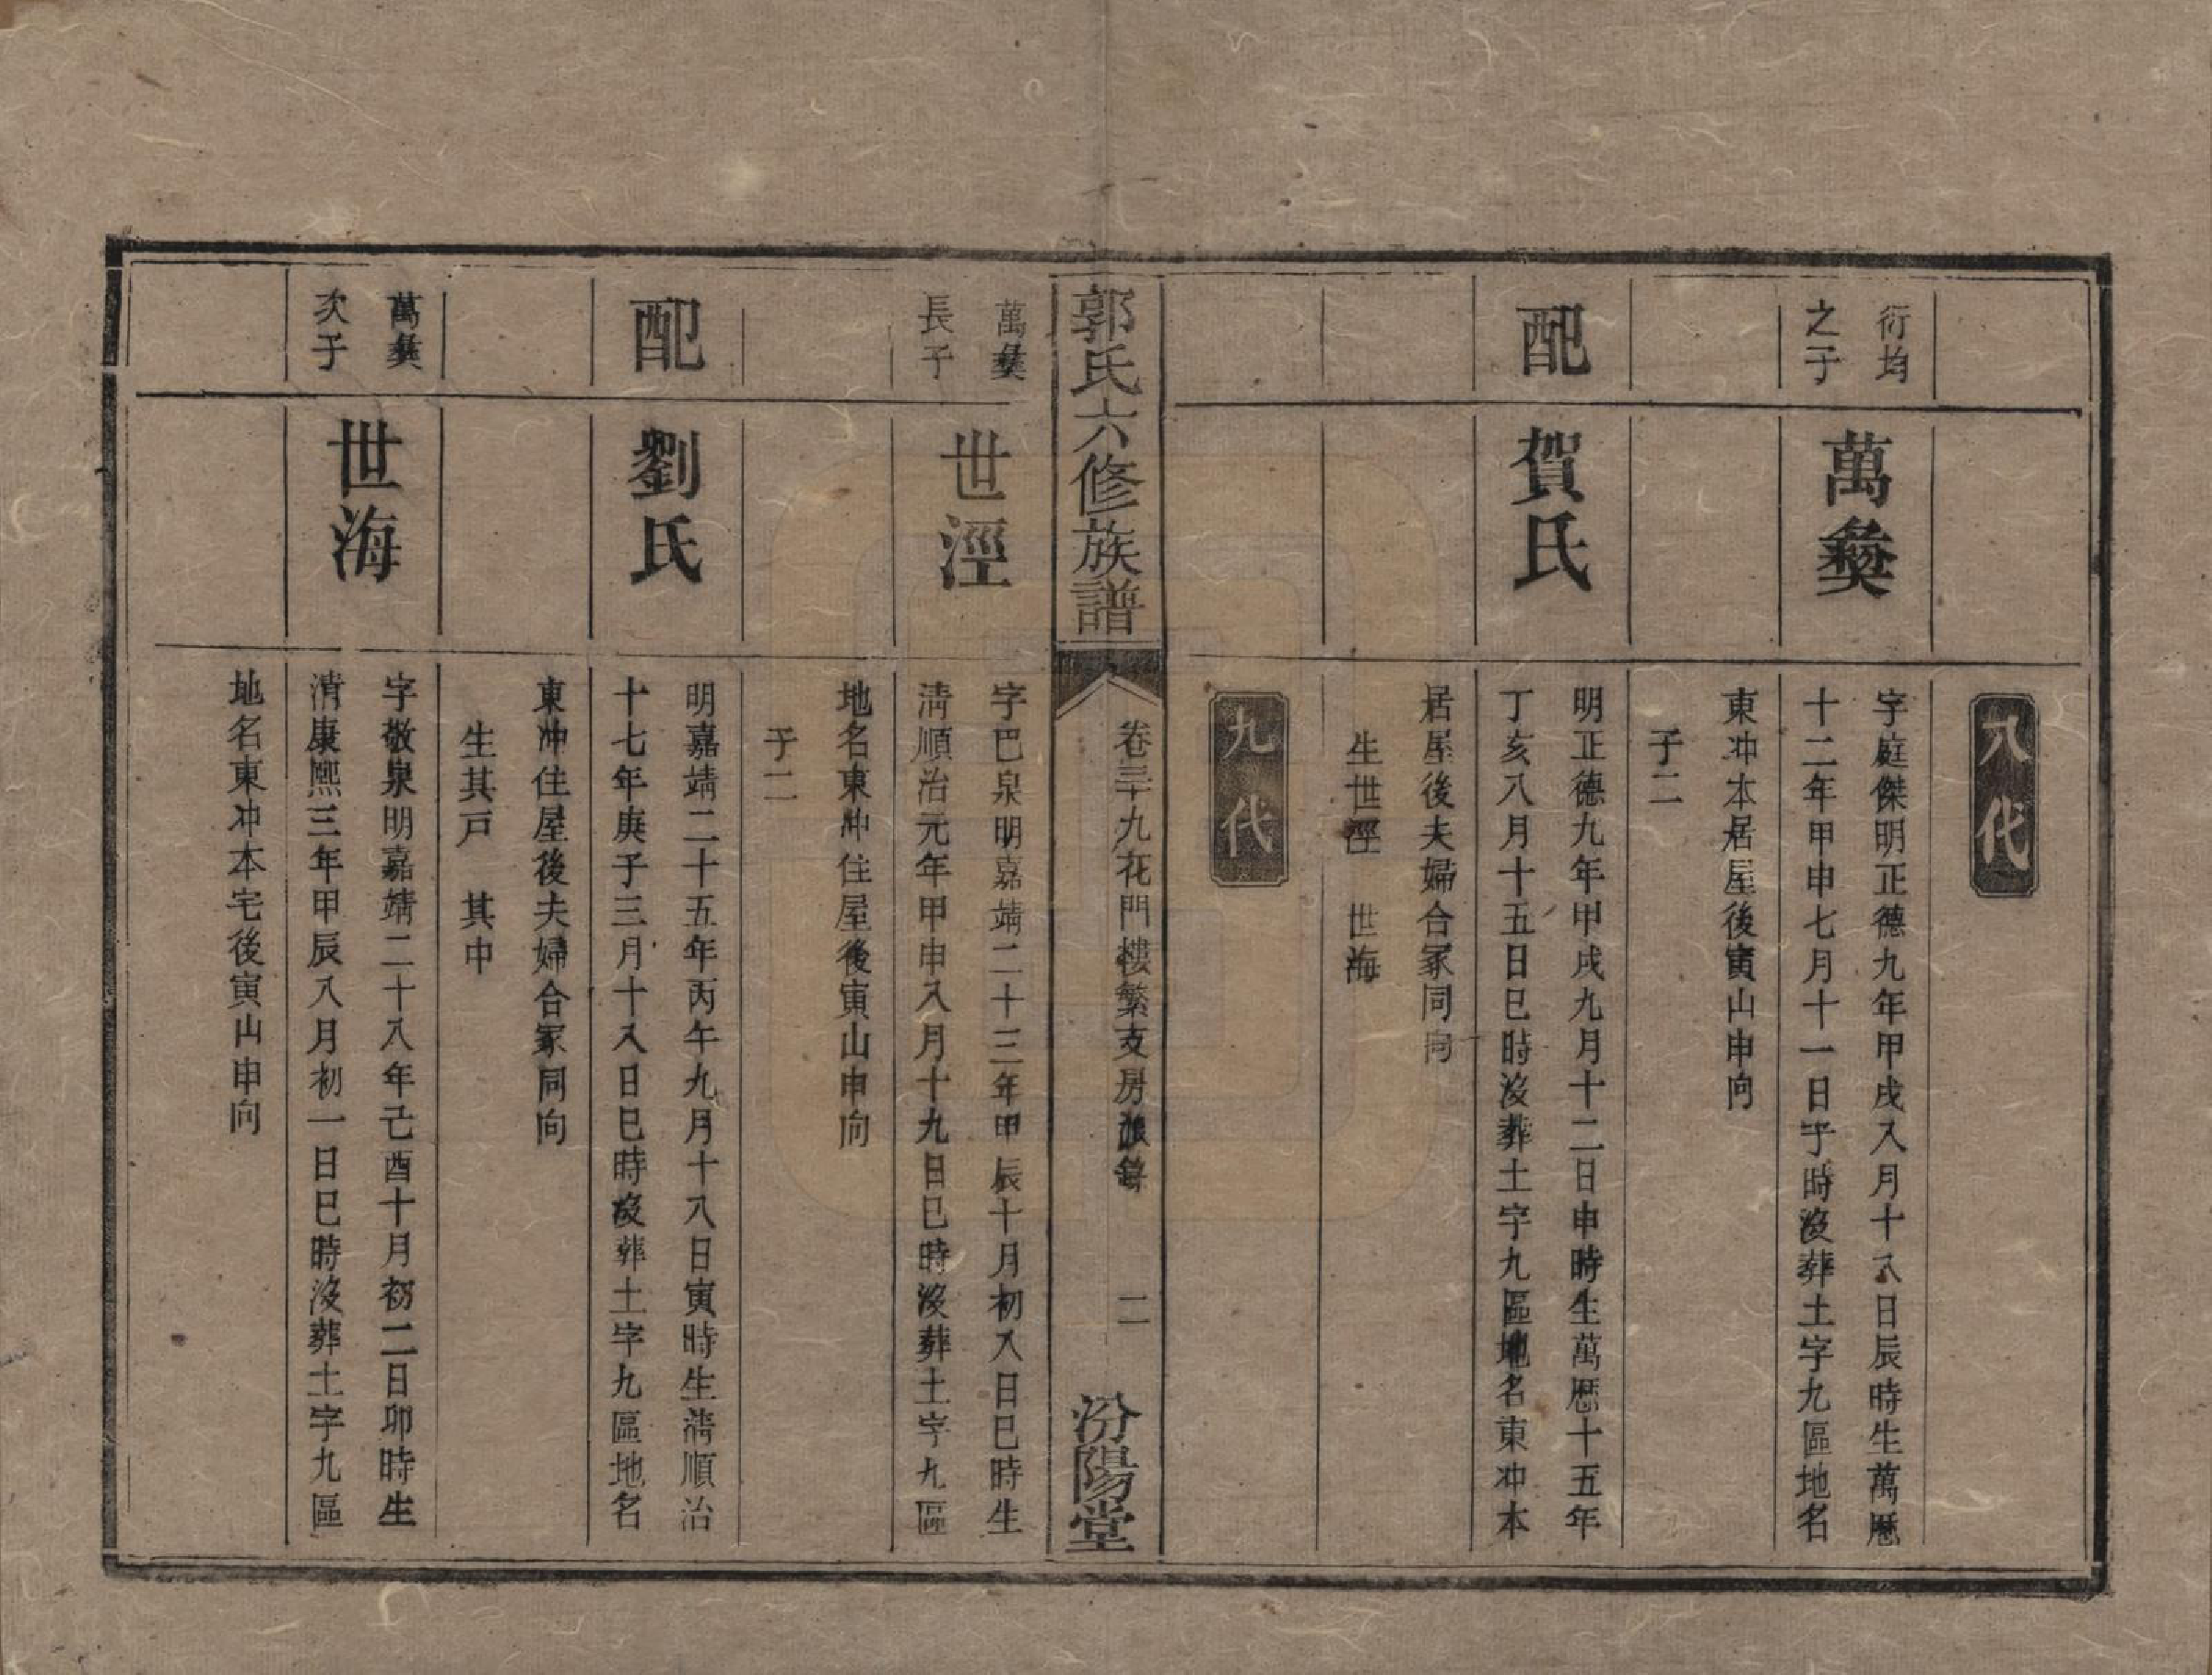 八代
衍均
之子
萬彝
字庭傑明正德九年甲戌八月十八日辰時生萬曆
十二年甲申七月十一日子時沒葬土字九區地名
東冲本居屋後寅山申向
子二
配
賀氏
明正德九年甲戌九月十二日申時生萬曆十五年
丁亥八月十五日巳時沒葬土字九區地名東冲本
居屋後夫婦合冢同向
生世涇　世海
九代
郭氏六修族譜
卷三十九花門樓繁支房派錄
二
汾陽堂
萬彝
長子
世涇
字巴泉明嘉靖二十三年甲辰十月初八日巳時生
清順治元年甲申八月十九日巳時沒葬土字九區
地名東冲住屋後寅山申向
子二
配
劉氏
明嘉靖二十五年丙午九月十八日寅時生清順治
十七年庚子三月十八日巳時沒葬土字九區地名
東冲住屋後夫婦合冢同向
生其戸　其中
萬彝
次子
世海
字敬泉明嘉靖二十八年己酉十月初二日卯時生
清康熙三年甲辰八月初一日巳時沒葬土字九區
地名東冲本宅後寅山申向